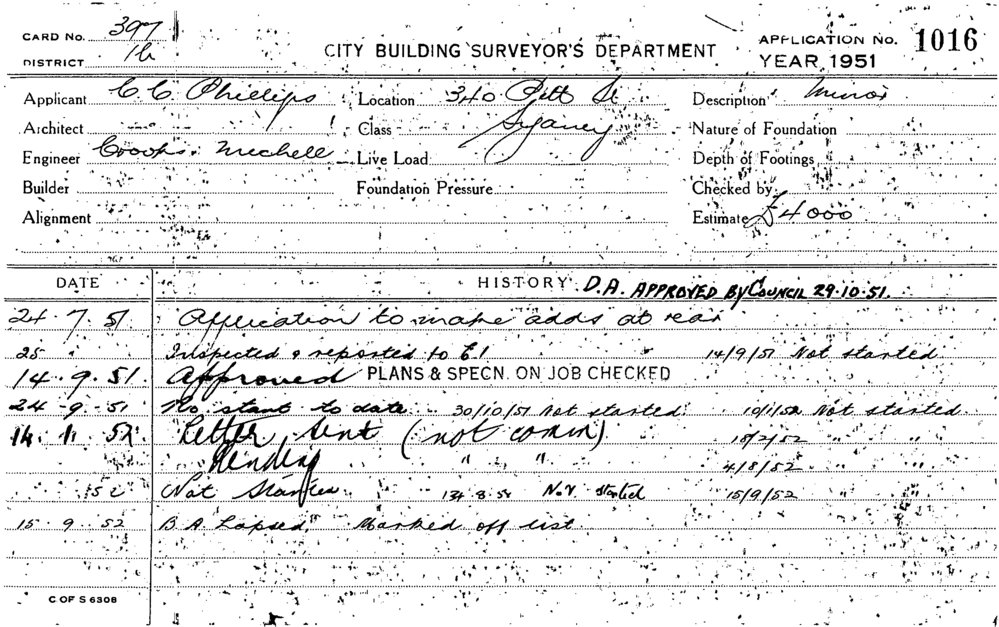 CARD No. 397
DISTRICT
CITY BUILDING SURVEYOR'S DEPARTMENT
APPLICATION No. 1016
YEAR 1951
Applicant C. C. Phillips Location 340 Pitt St Description Minor
Architect Class Sydney Nature of Foundation
Engineer Crooks Michell Live Load Depth of Footings
Builder Foundation Pressure Checked by
Alignment Estimate £4000
DATE HISTORY D.A. APPROVED BY COUNCIL 29.10.51.
24.7.51 Application to make adds at rear
25 " Inspected & reported to 14/9/51 Not started
14.9.51 Approved PLANS & SPECN. ON JOB CHECKED
24-9-51 No start to date 30/10/51 Not started 10/1/52 Not started
14.1.52 Letter sent (not comm) 15/2/52 " "
Pending " " 4/8/52 " "
52 Not Started Not started 15/9/52 " "
15.9.52 B.A Lapsed Marked off list
C OF S 6308